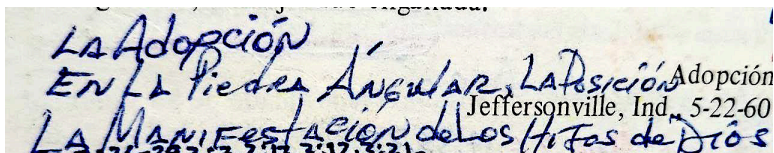 engañada.
LA Adopción
EN LA PIEdRA ÁNGULAR, LA POSICIÓN Adopción
Jeffersonville, Ind., 5-22-60
LA MANIFESTACIÓN de Los HIJOS de DIOS